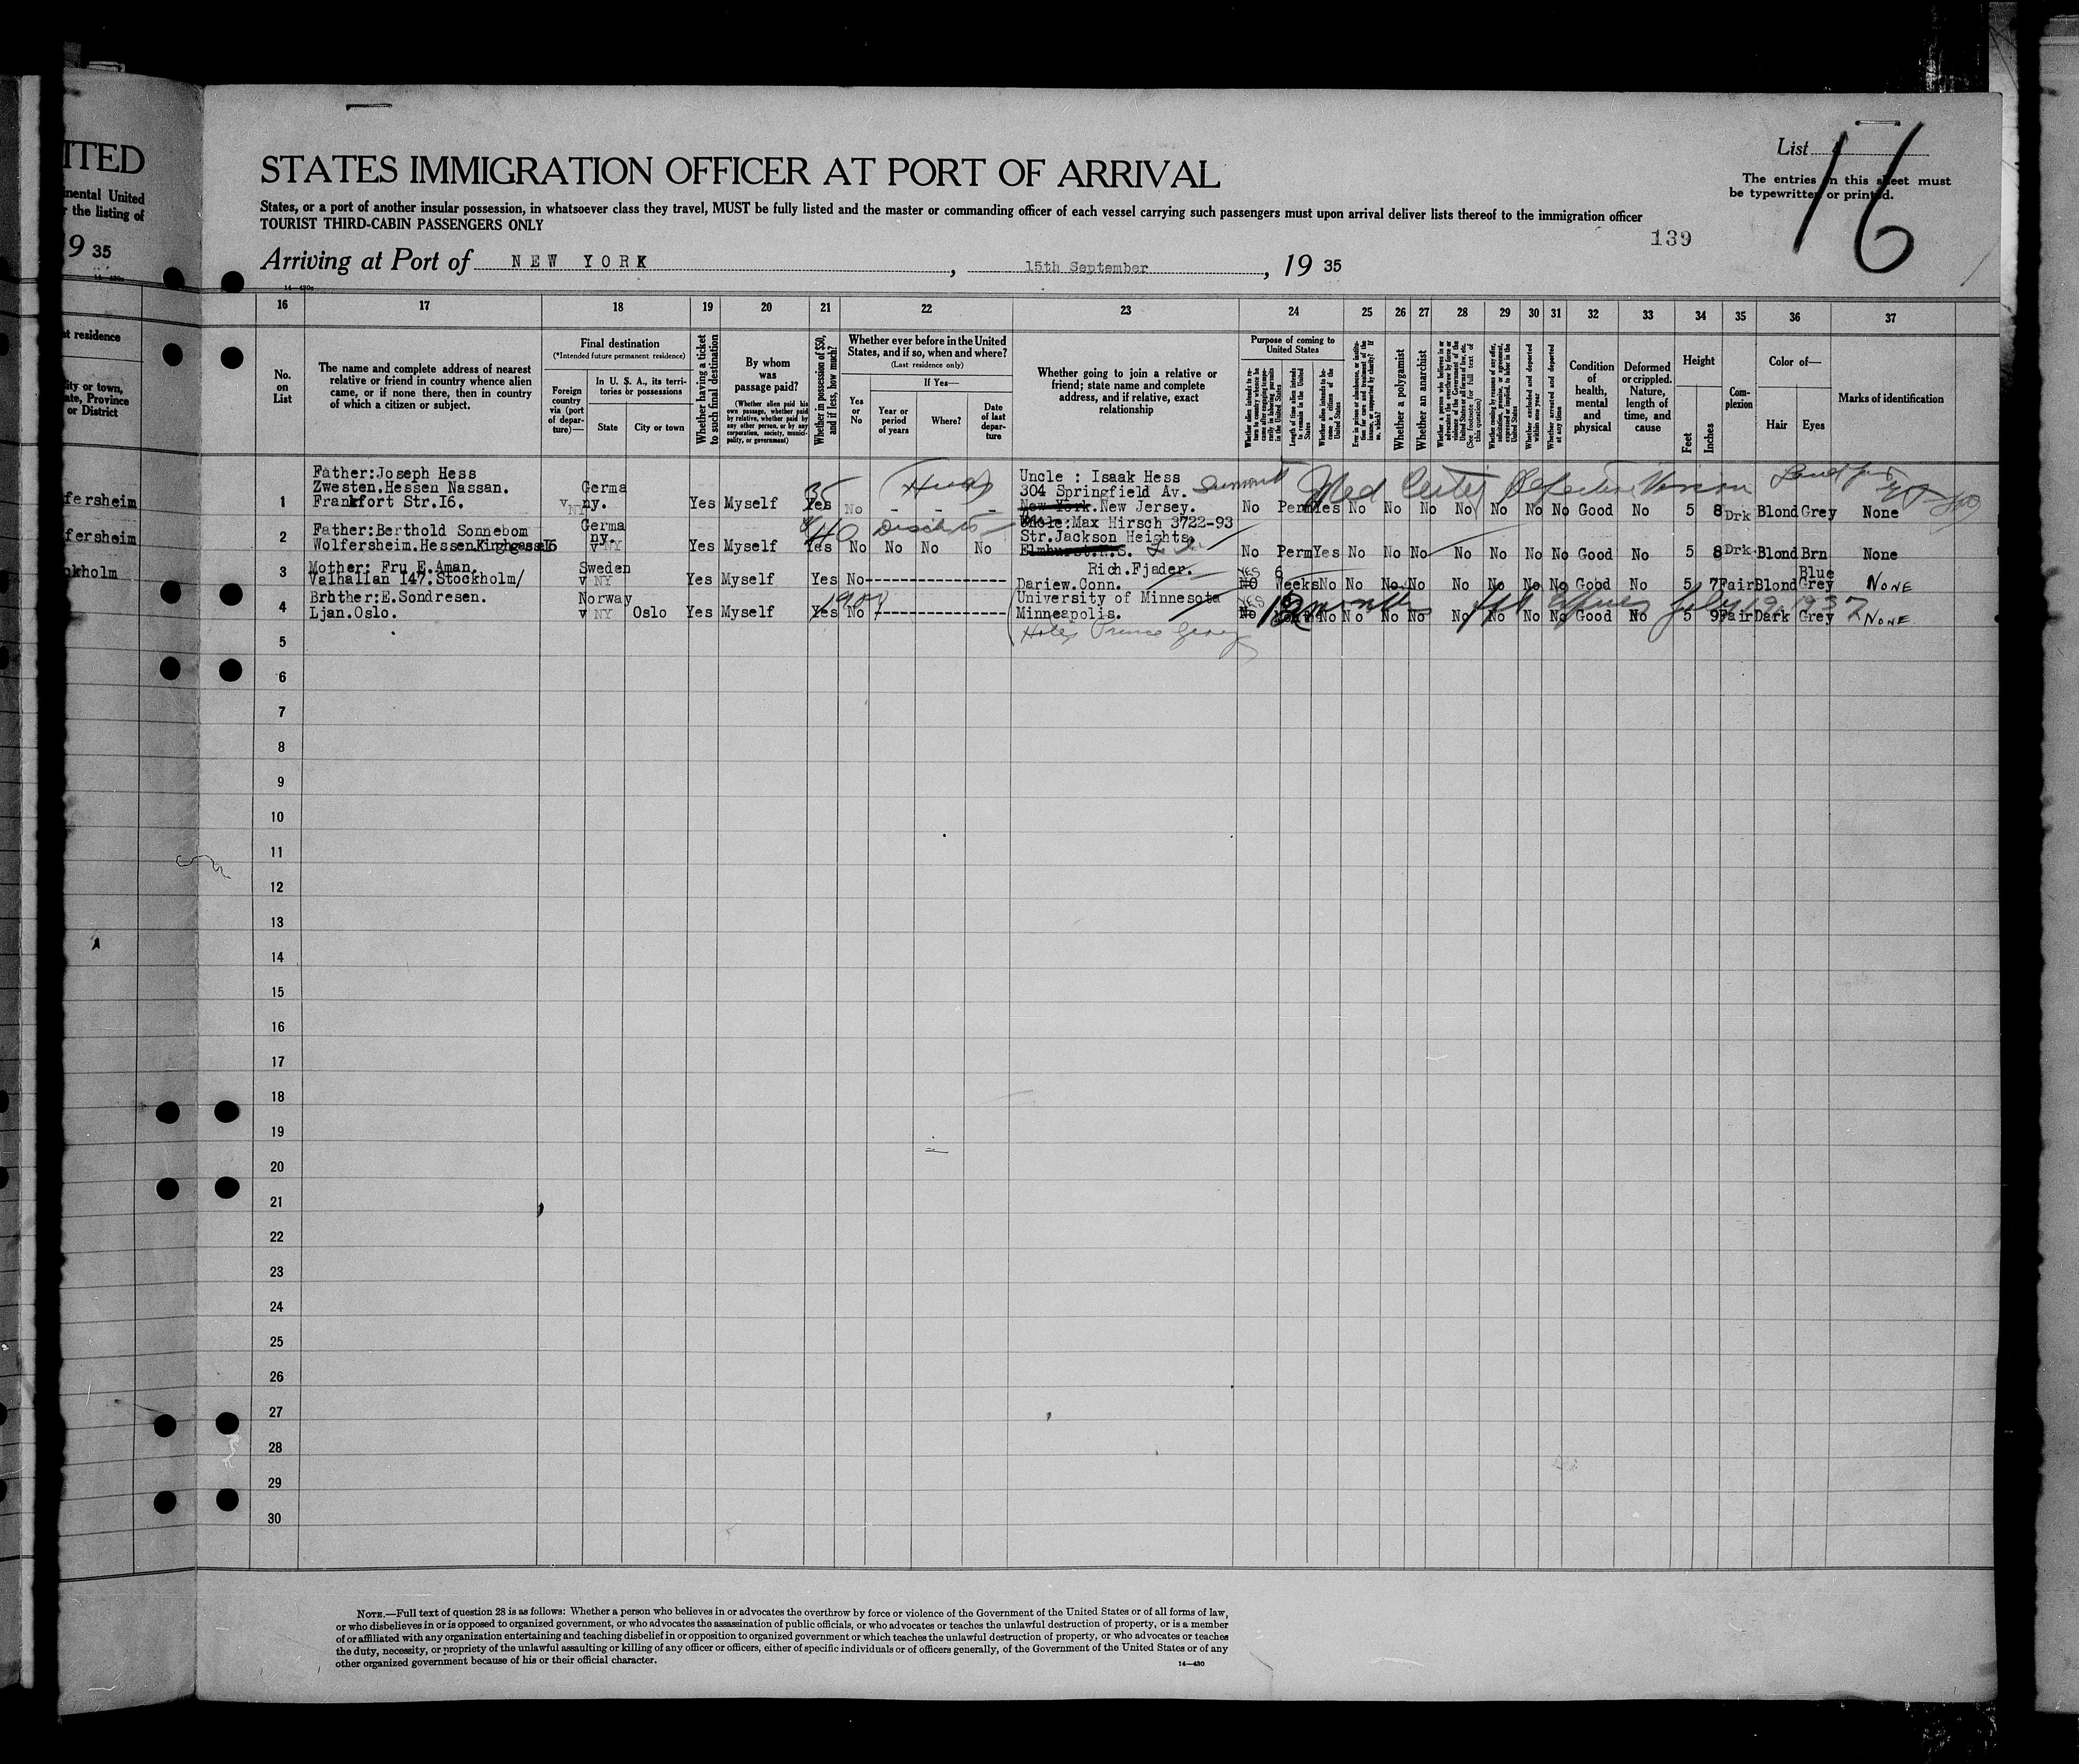 ITED
STATES IMMIGRATION OFFICER AT PORT OF ARRIVAL
List
16
The entries on this sheet must
be typewritten or printed.
inental United
r the listing of
States, or a port of another insular possession, in whatsoever class they travel, MUST be fully listed and the master or commanding officer of each vessel carrying such passengers must upon arrival deliver lists thereof to the immigration officer
TOURIST THIRD-CABIN PASSENGERS ONLY
139
9 35
Arriving at Port of NEW YORK, 15th September, 19 35
16 17 18 19 20 21 22 23 24 25 26 27 28 29 30 31 32 33 34 35 36 37
t residence
ity or town,
ate, Province
or District
No.
on
List
The name and complete address of nearest
relative or friend in country whence alien
came, or if none there, then in country
of which a citizen or subject.
Final destination
(*Intended future permanent residence)
Foreign
country
via (port
of depar-
ture)—
In U. S. A., its terri-
tories or possessions
State
City or town
Whether having a ticket
to such final destination
By whom
was
passage paid?
(Whether alien paid his
own passage, whether paid
by relative, whether paid by
any other person, or by any
corporation, society, munici-
pality, or government)
Whether in possession of $50,
and if less, how much?
Whether ever before in the United
States, and if so, when and where?
(Last residence only)
Yes
or
No
If Yes—
Year or
period
of years
Where?
Date
of last
depar-
ture
Whether going to join a relative or
friend; state name and complete
address, and if relative, exact
relationship
Purpose of coming to
United States
Length of time alien intends
to remain in the United
States
Whether alien intends to be-
come a citizen of the
United States
Whether a polygamist
Whether an anarchist
Whether arrested and deported
at any time
Condition
of
health,
mental
and
physical
Deformed
or crippled.
Nature,
length of
time, and
cause
Height
Feet
Inches
Com-
plexion
Color of—
Hair
Eyes
Marks of identification
fersheim
1
Father:Joseph Hess
Zwesten.Hessen Nassan.
Frankfort Str.I6.
Germa
ny.
v NY
Yes Myself Yes No - - - -
35
Uncle : Isaak Hess
304 Springfield Av. Summit
New York.New Jersey.
Med Certif Defective Vision
No Perm Yes No No No No No No No Good No 5 8 Drk Blond Grey None
fersheim
2
Father:Berthold Sonnebom
Wolfersheim.Hessen.Kirchgasse I6
Germa
ny.
v NY
Yes Myself Yes No No No No
40
Uncle:Max Hirsch 3722-93
Str.Jackson Heights.
No Perm Yes No No No No No No No Good No 5 8 Drk Blond Brn None
ckholm
3
Mother: Fru E.Aman.
Valhallan I47.Stockholm/
Sweden
v NY
Yes Myself Yes No----------------
Rich.Fjader.
Dariew.Conn.
YES 6
No Weeks No No No No No No No No Good No 5 7 Fair Blond Blue
Grey NONE
4
Brother:E.Sondresen.
Ljan.Oslo.
Norway
v NY Oslo Yes Myself Yes No ---------------
University of Minnesota
Minneapolis.
Hotel Prince George
YES
No 12 months No No No No No No No No Good No 5 9 Fair Dark Grey NONE
July 19, 1937
5
6
7
8
9
10
11
12
13
14
15
16
17
18
19
20
21
22
23
24
25
26
27
28
29
30
NOTE.—Full text of question 28 is as follows: Whether a person who believes in or advocates the overthrow by force or violence of the Government of the United States or of all forms of law,
or who disbelieves in or is opposed to organized government, or who advocates the assassination of public officials, or who advocates or teaches the unlawful destruction of property, or is a member
of or affiliated with any organization entertaining and teaching disbelief in or opposition to organized government or which teaches the unlawful destruction of property, or who advocates or teaches
the duty, necessity, or propriety of the unlawful assaulting or killing of any officer or officers, either of specific individuals or of officers generally, of the Government of the United States or of any
other organized government because of his or their official character.
14—430